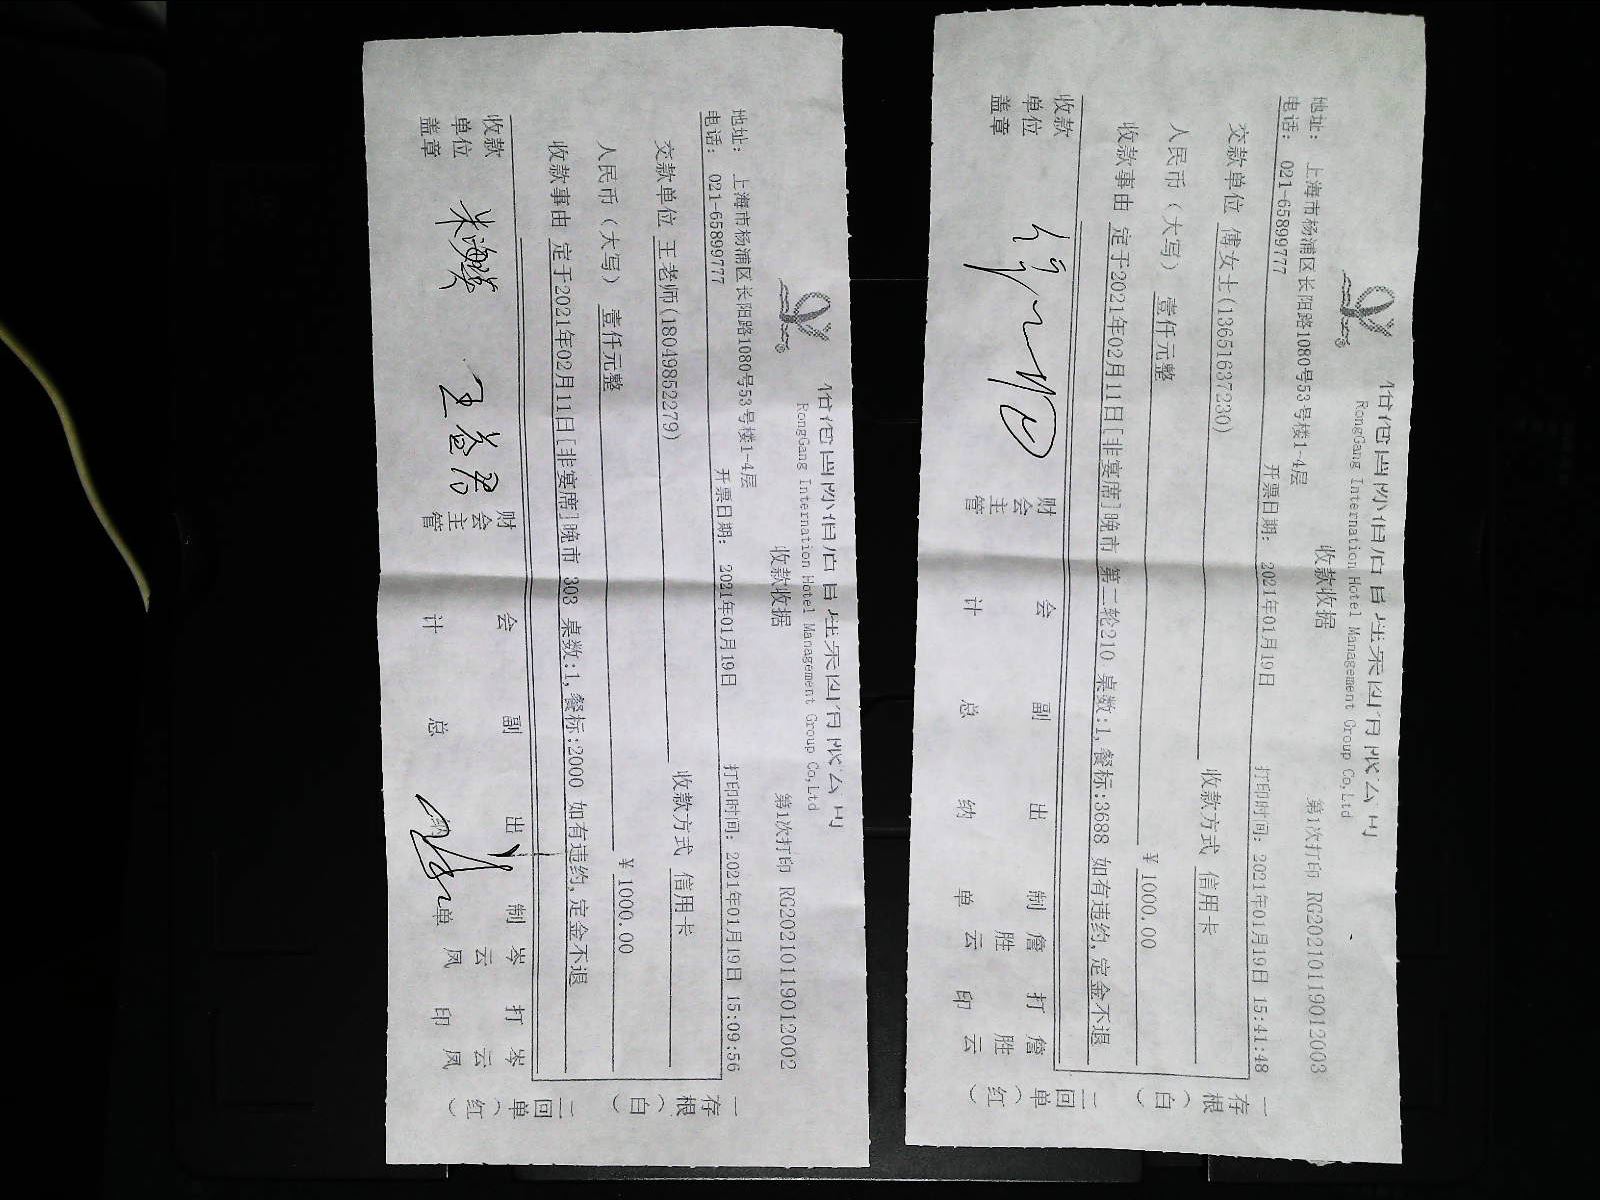 RongGang International Hotel Management Group Co,Ltd
收款收据
第1次打印 RG20210119012002
地址： 上海市杨浦区长阳路1080号53号楼1-4层
电话： 021-65899777
开票日期： 2021年01月19日
打印时间： 2021年01月19日 15:09:56
交款单位 王老师(18049852279)
收款方式 信用卡
人民币（大写） 壹仟元整
￥1000.00
收款事由 定于2021年02月11日[非宴席]晚市 303 桌数:1,餐标:2000 如有违约,定金不退
收款单位盖章
财会主管
会计
副总
出
制单 岑云凤
打印 岑云凤
一存根（白）
二回单（红）
RongGang International Hotel Management Group Co,Ltd
收款收据
第1次打印 RG20210119012003
地址： 上海市杨浦区长阳路1080号53号楼1-4层
电话： 021-65899777
开票日期： 2021年01月19日
打印时间： 2021年01月19日 15:41:48
交款单位 傅女士(13651637230)
收款方式 信用卡
人民币（大写） 壹仟元整
￥1000.00
收款事由 定于2021年02月11日[非宴席]晚市 第二轮210 桌数:1,餐标:3688 如有违约,定金不退
收款单位盖章
财会主管
会计
副总
出纳
制单 詹胜云
打印 詹胜云
一存根（白）
二回单（红）